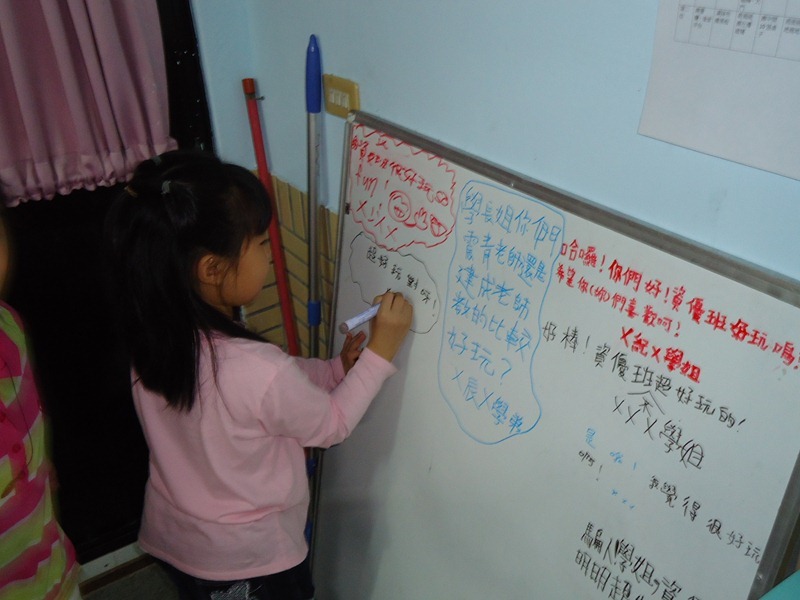 fun!
超好玩對呀!
學長姐你們
雲青老師還是
建成老師
教的比較
好玩?
X辰X學弟
哈囉!你們好!資優班好玩嗎?
希望你(妳)們喜歡呵?
X紀X學姐
好棒!資優班超好玩的!
XXX學姐
是啦!
我覺得很好玩
騙人學姐,資
明明超